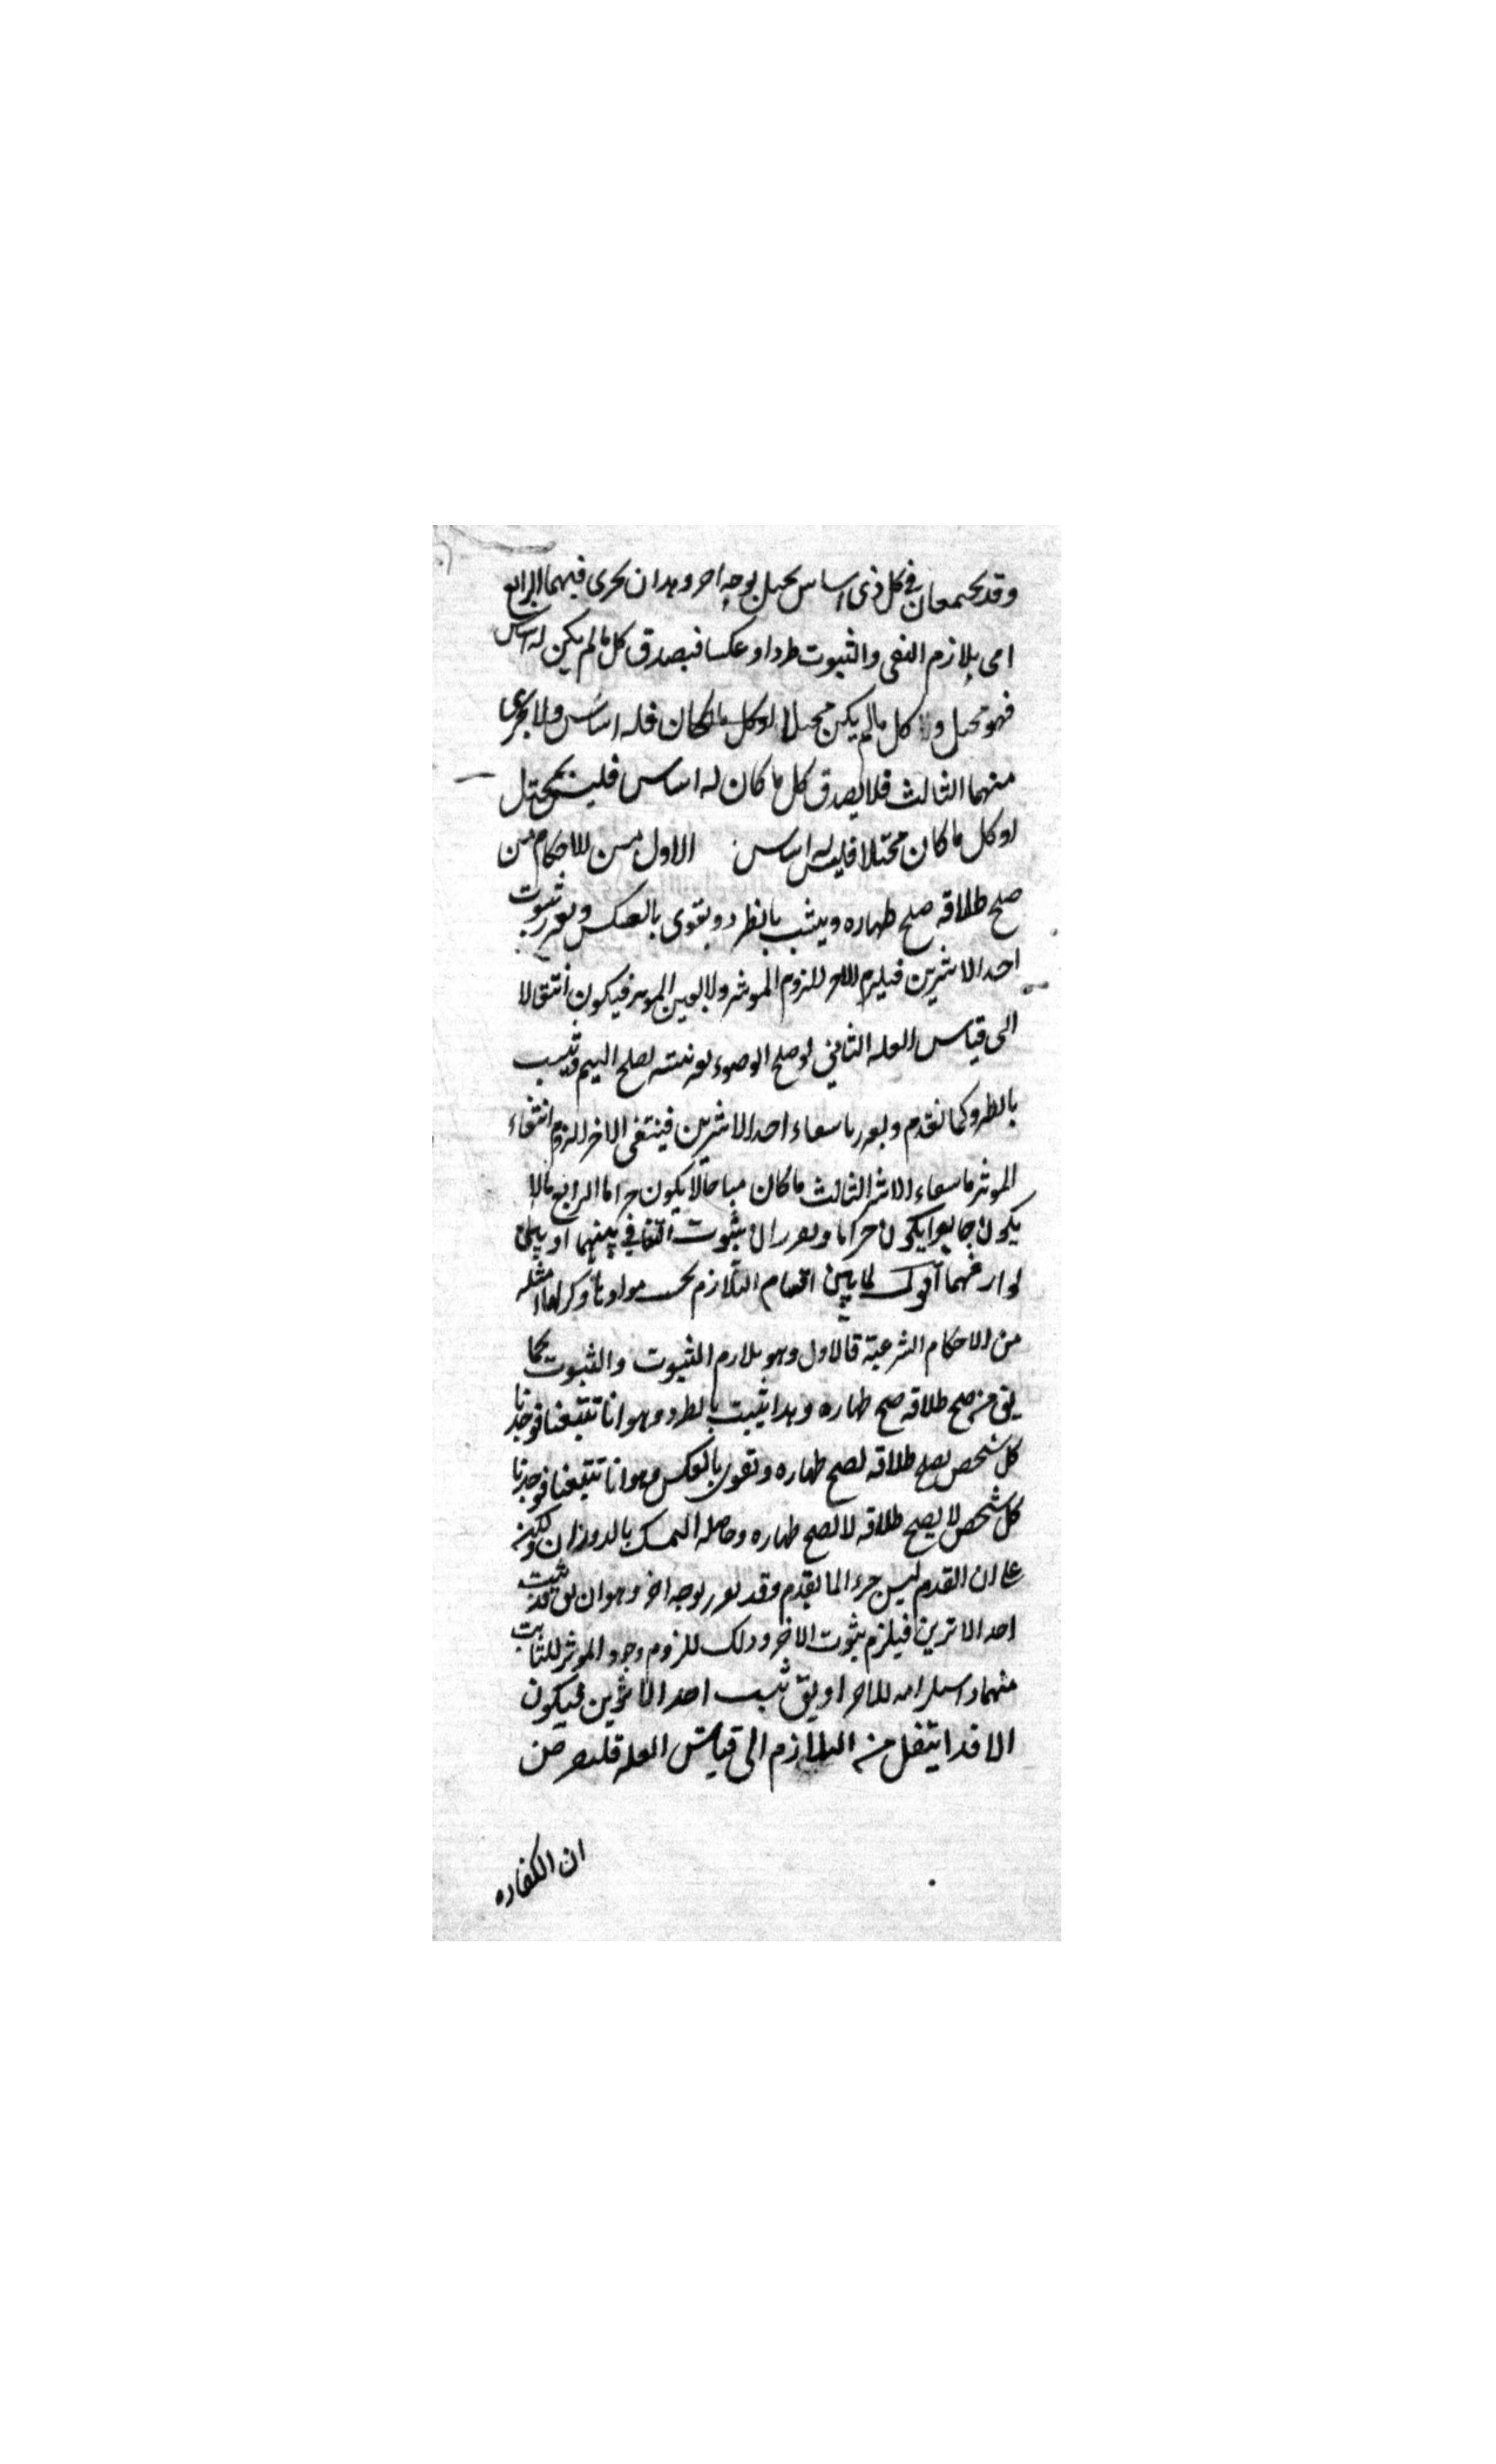 وقد يجتمعان في كل ذى اساس يختل بوجه اخر وهذان يجرى فيهما الرابع
اى تلازم النفى والثبوت طردا وعكسا فيصدق كل ما لم يكن له اساس
فهو مختل و كل ما لم يكن مختلا فله اساس ولا يجرى
منهما الثالث فلا يصدق كل ما كان له اساس فليس بمختل
او كل ما كان مختلا فليس له اساس الاول من الاحكام من
صح طلاقه صح ظهاره ويثبت بالطرد ويقوى بالعكس ويقرر بثبوت
احد الاثرين فيلزم الاخر للزوم المؤثر ولا يعين المؤثر فيكون انتقالا
الى قياس العلة الثانى لو صح الوضوء بغير نية لصح التيمم ويثبت
بالطرد كما تقدم ويقرر بانتفاء احد الاثرين فينتفى الاخر للزوم انتفاء
المؤثر بانتفاء الاثر الثالث ما كان مباحا لا يكون حراما الرابع ما لا
يكون جايزا يكون حراما ويقرران بثبوت التنافى بينهما او بين
لوازمهما اقول لما بين اقسام التلازم بحسب موادها ذكر لها امثلة
من الاحكام الشرعية فالاول وهو تلازم الثبوت والثبوت كما
يق من صح طلاقه صح ظهاره وهذا يثبت بالطرد وهو انا تتبعنا فوجدنا
كل شخص يصح طلاقه يصح ظهاره وتقوى بالعكس وهو انا تتبعنا فوجدنا
كل شخص لا يصح طلاقه لا يصح ظهاره وحاصله التمسك بالدوران ولكنه
على ان القدم ليس جزءا لما تقدم وقد يقرر بوجه اخر وهو ان يق قد ثبت
احد الاثرين فيلزم ثبوت الاخر وذلك للزوم وجود المؤثر للثابت
منهما واستلزامه للاخر او يق ثبت احد الاثرين فيكون
الا قد انتقل من التلازم الى قياس العلة فليفرض
ان الكفاره